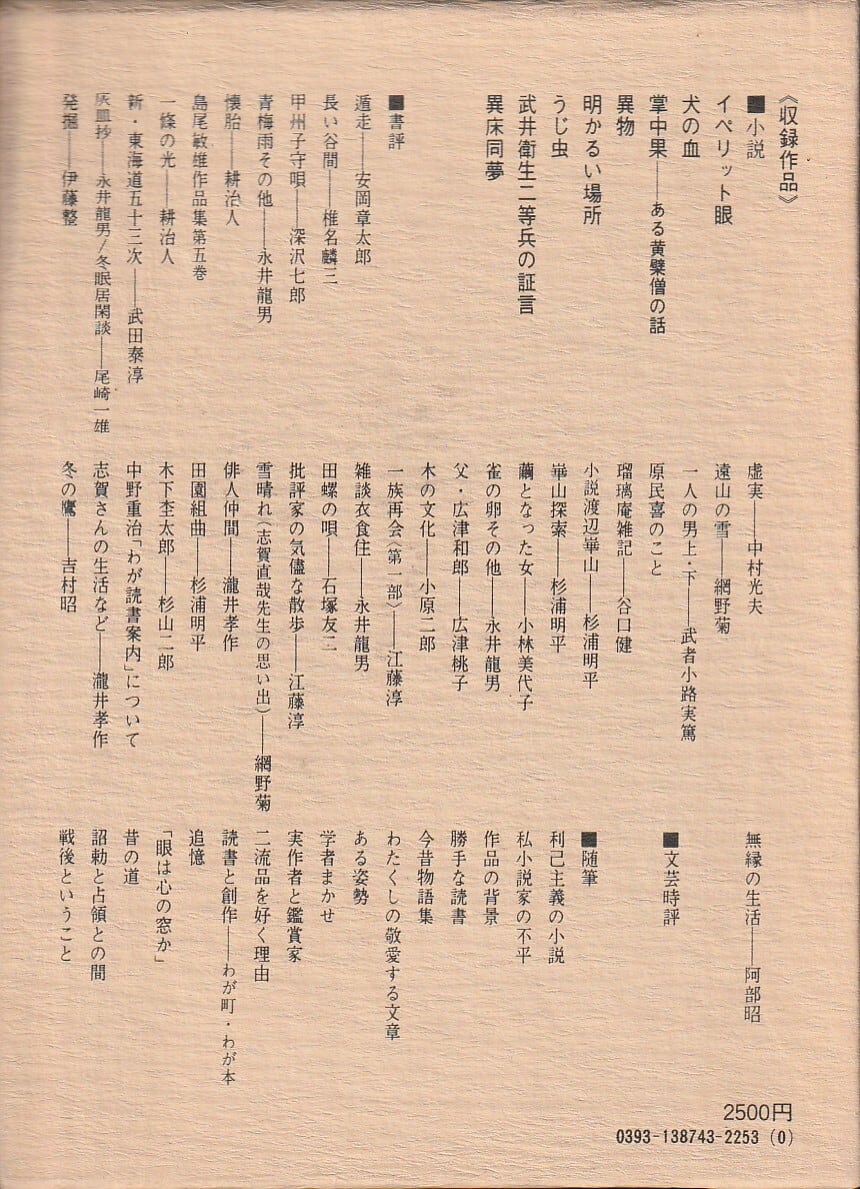 《収録作品》
■小説
イペリット眼
犬の血
掌中果——ある黄檗僧の話
異物
明かるい場所
うじ虫
武井衛生二等兵の証言
異床同夢
■書評
遁走——安岡章太郎
長い谷間——椎名麟三
甲州子守唄——深沢七郎
青梅雨その他——永井龍男
懐胎——耕治人
島尾敏雄作品集第五巻
一條の光——耕治人
新・東海道五十三次——武田泰淳
灰皿抄——永井龍男/冬眠居閑談——尾崎一雄
発掘——伊藤整
虚実——中村光夫
遠山の雪——網野菊
一人の男上・下——武者小路実篤
原民喜のこと
瑠璃庵雑記——谷口健
小説渡辺崋山——杉浦明平
崋山探索——杉浦明平
繭となった女——小林美代子
雀の卵その他——永井龍男
父・広津和郎——広津桃子
木の文化——小原二郎
一族再会〈第一部〉——江藤淳
雑談衣食住——永井龍男
田螺の唄——石塚友二
批評家の気儘な散歩——江藤淳
雪晴れ(志賀直哉先生の思い出)——網野菊
俳人仲間——瀧井孝作
田園組曲——杉浦明平
木下杢太郎——杉山二郎
中野重治「わが読書案内」について
志賀さんの生活など——瀧井孝作
冬の鷹——吉村昭
無縁の生活——阿部昭
■文芸時評
■随筆
利己主義の小説
私小説家の不平
作品の背景
勝手な読書
今昔物語集
わたくしの敬愛する文章
ある姿勢
学者まかせ
実作者と鑑賞家
二流品を好く理由
読書と創作——わが町・わが本
追憶
「眼は心の窓か」
昔の道
詔勅と占領との間
戦後ということ
2500円
0393-138743-2253 (0)